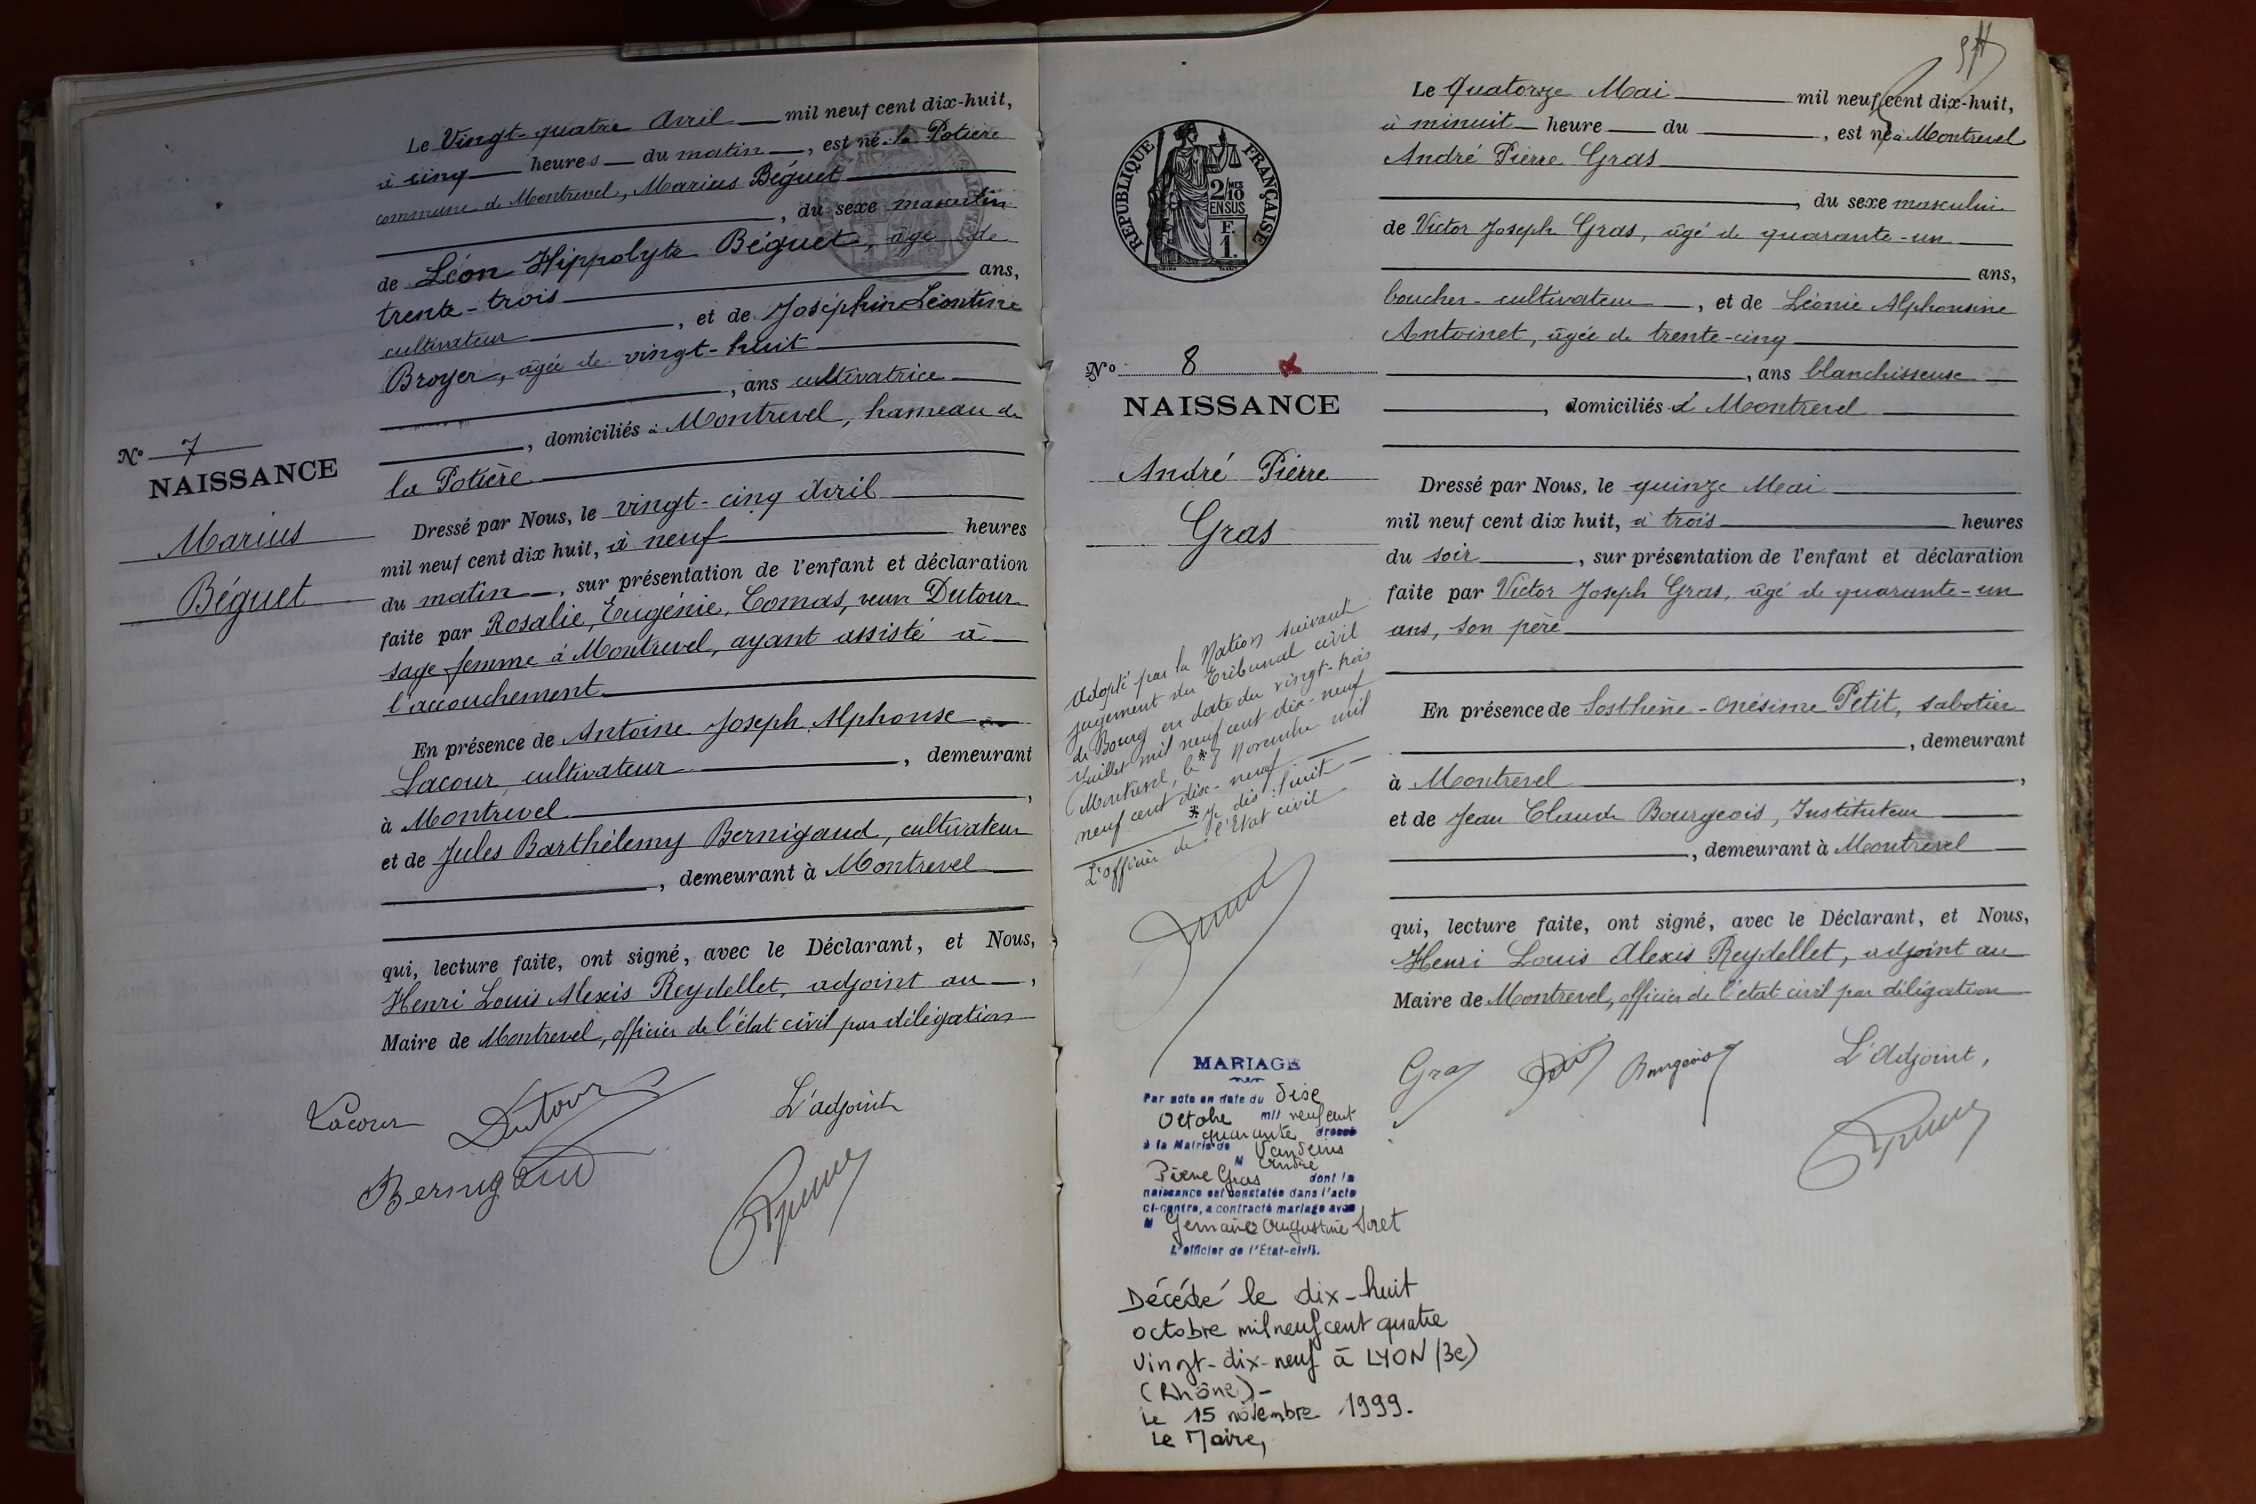 Le Vingt-quatre Avril mil neuf cent dix-huit,
à cinq heures du matin, est né à la Potière
commune de Montrevel, Marius Béguet
, du sexe masculin
de Léon Hippolyte Béguet, âgé de
trente-trois ans,
cultivateur, et de Joséphine Léontine
Broyer, âgée de vingt-huit
, ans cultivatrice
, domiciliés à Montrevel, hameau de
la Potière
No 7
NAISSANCE
Marius
Béguet
Dressé par Nous, le vingt-cinq Avril
mil neuf cent dix huit, à neuf heures
du matin, sur présentation de l'enfant et déclaration
faite par Rosalie, Eugénie, Comas, veuve Dutour
sage femme à Montrevel, ayant assisté à
l'accouchement
En présence de Antoine Joseph Alphonse
Lacour, cultivateur, demeurant
à Montrevel,
et de Jules Barthélemy Bernigaud, cultivateur
, demeurant à Montrevel
qui, lecture faite, ont signé, avec le Déclarant, et Nous,
Henri Louis Alexis Reydellet, adjoint au,
Maire de Montrevel, officier de l'état civil par délégation
Lacour Dutour L'adjoint
Bernigaud
RÉPUBLIQUE FRANÇAISE
2/10 MES
EN SUS
F.
1.
No 8
NAISSANCE
André Pierre
Gras
Adopté par la Nation suivant
jugement du Tribunal civil
de Bourg en date du vingt-trois
Juillet mil neuf cent dix-neuf
Montrevel, le * 7 Novembre mil
neuf cent dix-neuf
* dix-huit
L'officier de l'Etat civil
MARIAGE
Par acte en date du dixe
Octobre mil neuf cent
quarante dressé
à la Mairie de Vandeins
M André
Pierre Gras dont la
naissance est constatée dans l'acte
ci-contre, a contracté mariage avec
M Germaine Augustine Soret
L'officier de l'Etat-civil.
Décédé le dix-huit
octobre mil neuf cent quatre
vingt-dix-neuf à LYON (3e)
(Rhône)-
Le 15 novembre 1999.
Le Maire,
Le Quatorze Mai mil neuf cent dix-huit,
à minuit heure du, est né à Montrevel
André Pierre Gras
, du sexe masculin
de Victor Joseph Gras, âgé de quarante-un
ans,
boucher-cultivateur, et de Léonie Alphonsine
Antoinet, âgée de trente-cinq
, ans blanchisseuse
, domiciliés à Montrevel
Dressé par Nous, le quinze Mai
mil neuf cent dix huit, à trois heures
du soir, sur présentation de l'enfant et déclaration
faite par Victor Joseph Gras, âgé de quarante-un
ans, son père
En présence de Sosthène-Onésime Petit, sabotier
, demeurant
à Montrevel,
et de Jean Claude Bourgeois, Instituteur
, demeurant à Montrevel
qui, lecture faite, ont signé, avec le Déclarant, et Nous,
Henri Louis Alexis Reydellet, adjoint au
Maire de Montrevel, officier de l'état civil par délégation
Gras Petit Bourgeois L'Adjoint,